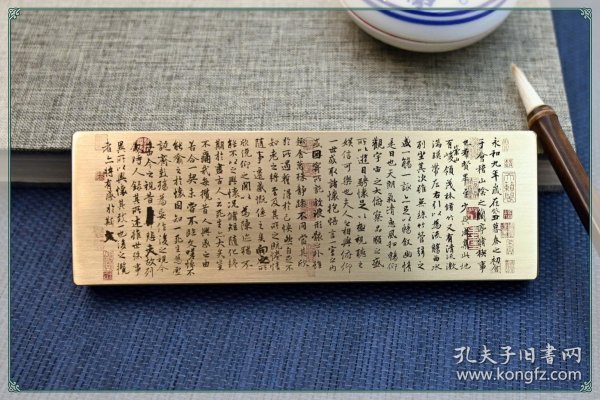 永和九年歲在癸丑暮春之初會
于會稽山陰之蘭亭脩稧事
也羣賢畢至少長咸集此地
有崇山峻領茂林脩竹又有清流激
湍暎帶左右引以為流觴曲水
列坐其次雖無絲竹管弦之
盛一觴一詠亦足以暢敘幽情
是日也天朗氣清惠風和暢仰
觀宇宙之大俯察品類之盛
所以遊目騁懷足以極視聽之
娛信可樂也夫人之相與俯仰
一世或取諸懷抱悟言一室之內
或因寄所託放浪形骸之外雖
趣舍萬殊靜躁不同當其欣
於所遇蹔得於己怏然自足不
知老之將至及其所之既惓情
隨事遷感慨係之矣向之所
欣俛仰之閒以為陳迹猶不
能不以之興懷況脩短隨化終
期於盡古人云死生亦大矣豈
不痛哉每攬昔人興感之由
若合一契未嘗不臨文嗟悼不
能喻之於懷固知一死生為虛
誕齊彭殤為妄作後之視今
亦由今之視昔悲夫故列
敘時人錄其所述雖世殊事
異所以興懷其致一也後之攬
者亦將有感於斯文
孔夫子旧书网
www.kongfz.com